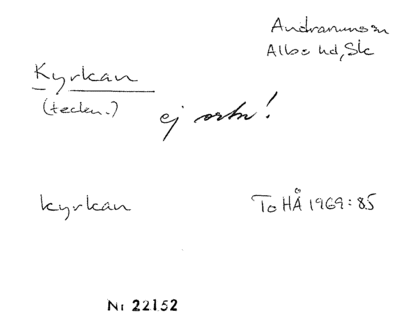 Andrarumssn
Albo hd, Sk
Kyrkan
(teckn.)
ej ortn!
kyrkan
To HÅ 1969:85
Nr 22152